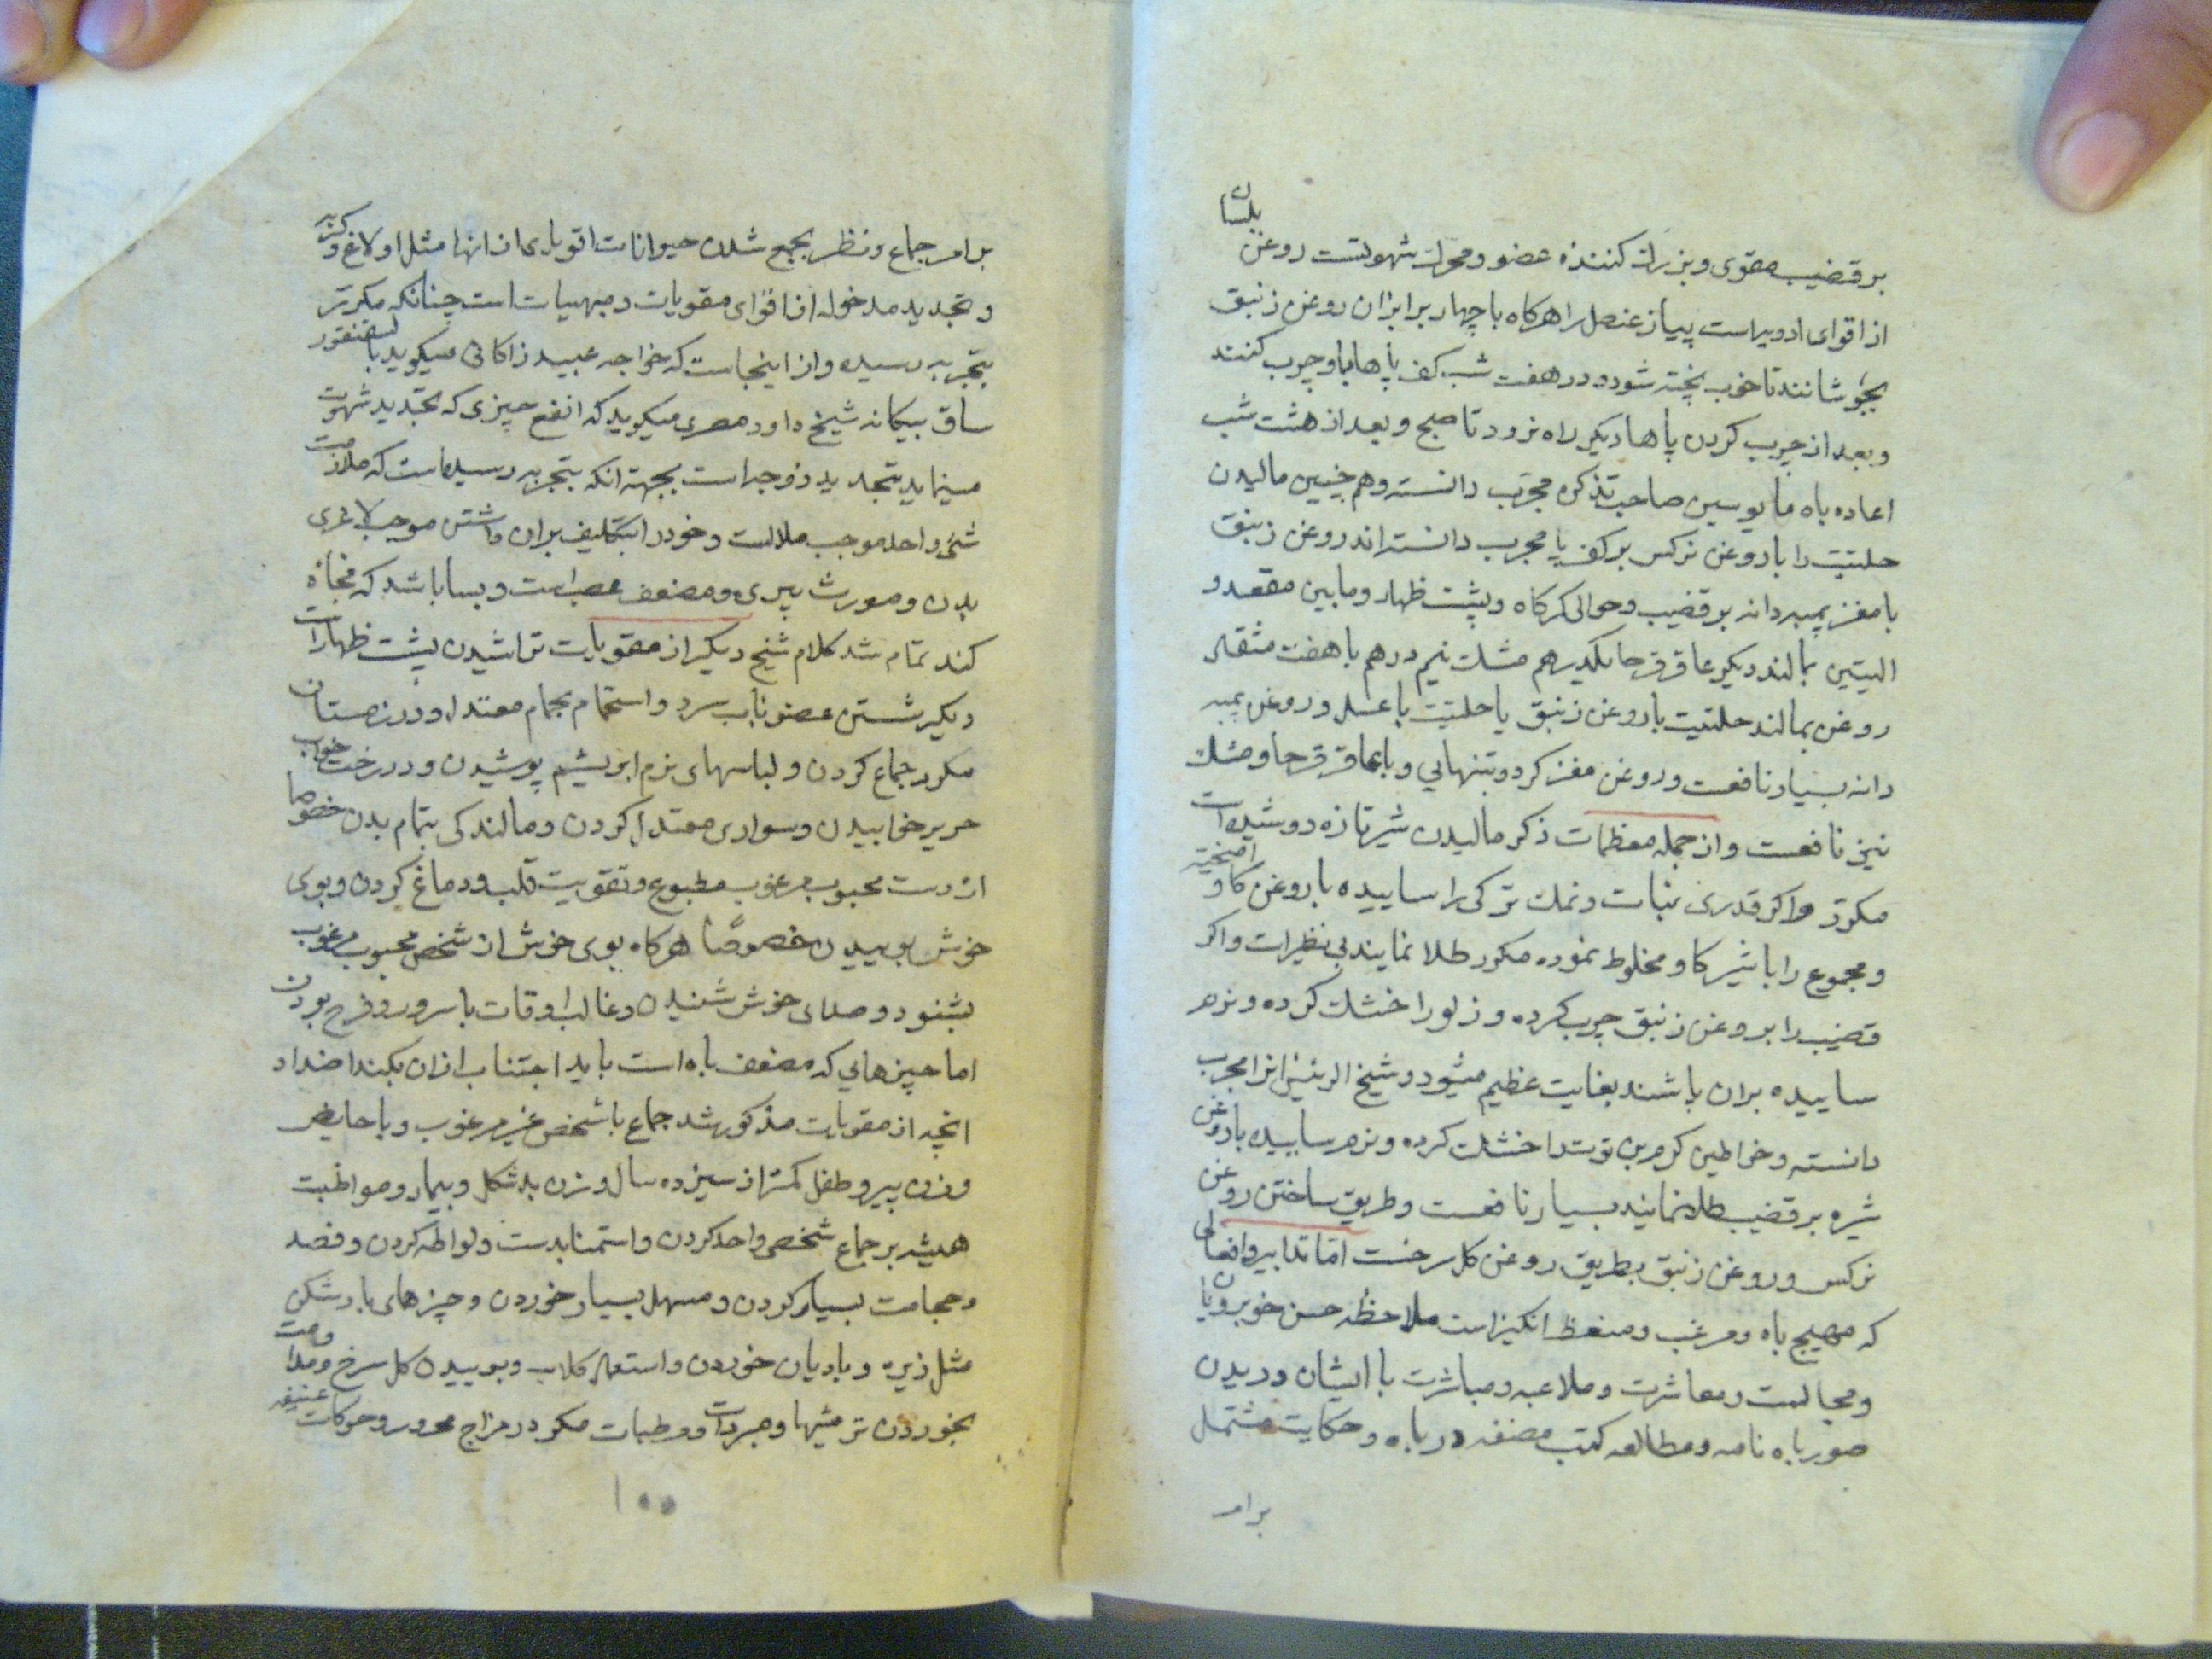 بر قضیب مقوی و بزرك كننده عضو و محرك شهوتست روغن بلسان
از اقوای ادویه است پیاز عنصل را هركاه با چهار برابر ان روغن زنبق
بجوشانند تا خوب پخته شود و در هفت شب كف پاها باو چرب كنند
و بعد از چرب كردن پاها دیكر راه نرود تا صبح و بعد از هشت شب
اعاده باه مایوسین صاحب تذكره مجرب دانسته و هم چنین مالیدن
حلتیت را با روغن نركس بر كف پا مجرب دانسته اند روغن زنبق
با مغز پمبه دانه بر قضیب و حوالی كمركاه و پشت ظهار و مابین مقعد و
الیتین بمالند دیكر عاقرقرحا یكدرهم مشك نیم درهم با هفت مثقال
روغن بمالند حلتیت با روغن زنبق یا حلتیت با عسل و روغن پمبه
دانه بسیار نافعست و روغن مغز كردو بتنهایی و با عاقرقرحا و مشك
نیز نافعست و از جمله معظمات ذكر مالیدن شیر تازه دوشیده است
مكرر و اكر قدری نبات و نمك تركی را ساییده با روغن كاو امیخته
و مجموع را با شیر كاو مخلوط نموده مكرر طلا نمایند بی نظیر است و اكر
قضیب را بروغن زنبق چرب كرده و زلو را خشك كرده و نرم
ساییده بران پاشند بغایت عظیم میشود و شیخ الرئیس انرا مجرب
دانسته و خراطین كرم بن توتدا خشك كرده و نرم ساییده با روغن
شیره بر قضیب طلا نمایند بسیار نافعست و طریق ساختن روغن
نركس و روغن زنبق بطریق روغن كل سرخست اما تدابیر و افعالی
كه مهیج باه و مرغب و منعظ انكیز است ملاحظه حسن خوبرویان
و مجالست و معاشرت و ملاعبه و مباشرت با ایشان و دیدن
صور باه نامه و مطالعه كتب مصنفه در باه و حكایت مشتمل
بر امر
بر امر جماع و نظر بجمع شدن حیوانات اتو باری از انها مثل اولاغ و
و تجدید مدخوله از اقوای مقویات و مبهیات است چنانكه مكرر
بتجربه رسیده و از اینجاست كه خواجه عبید زاكانی میكوید با سقنقور
ساق بیكانه شیخ داود مصری میكوید كه انفع چیزی كه تجدید شهوت
مینماید تجدید زوجه است بجهته انكه بتجربه رسیده است كه ملازمت
شیء واحد موجب ملالست و خود را بتكلیف بران داشتن موجب لاغری
بدن و مورث پیری و مضعف عصب است و بسا باشد كه فجاه
كند تمام شد كلام شیخ دیكر از مقویات تراشیدن پشت ظهار است
دیكر شستن عضو باب سرد و استحمام بحمام معتدل و در زمستان
مكرر جماع كردن و لباسهای نرم ابریشم پوشیدن و در رخت خواب
حریر خوابیدن و سواری معتدل كردن و مالندكی بتمام بدن خصوصا
از دست محبوب مرغوب مطبوع و تقویت قلب و دماغ كردن و بوی
خوش بوییدن خصوصًا هركاه بوی خوش از شخص محبوب مرغوب
بشنود و صدای خوش شنیدن و غالب اوقات با سرور و فرح بودن
اما چیزهایی كه مضعف باه است باید اجتناب ازان بكند اضداد
انچه از مقویات مذكور شد جماع با شخص غیر مرغوب و با حایض
و زن پیر و طفل كمتر از سیزده سال و زن بد شكل و بیمار و مواظبت
همیشه بر جماع شخص واحد كردن و استمنا بدست و لواطه كردن و فصد
و حجامت بسیار كردن و مسهل بسیار خوردن و چیزهای باد شكن
مثل زیره و بادیان خوردن و استعمال كلاب و بوییدن كل سرخ و مداومت
بخوردن ترشیها و مبردات و مرطبات مكرر در مزاج محرور و حركات عنیفه
١٠٠